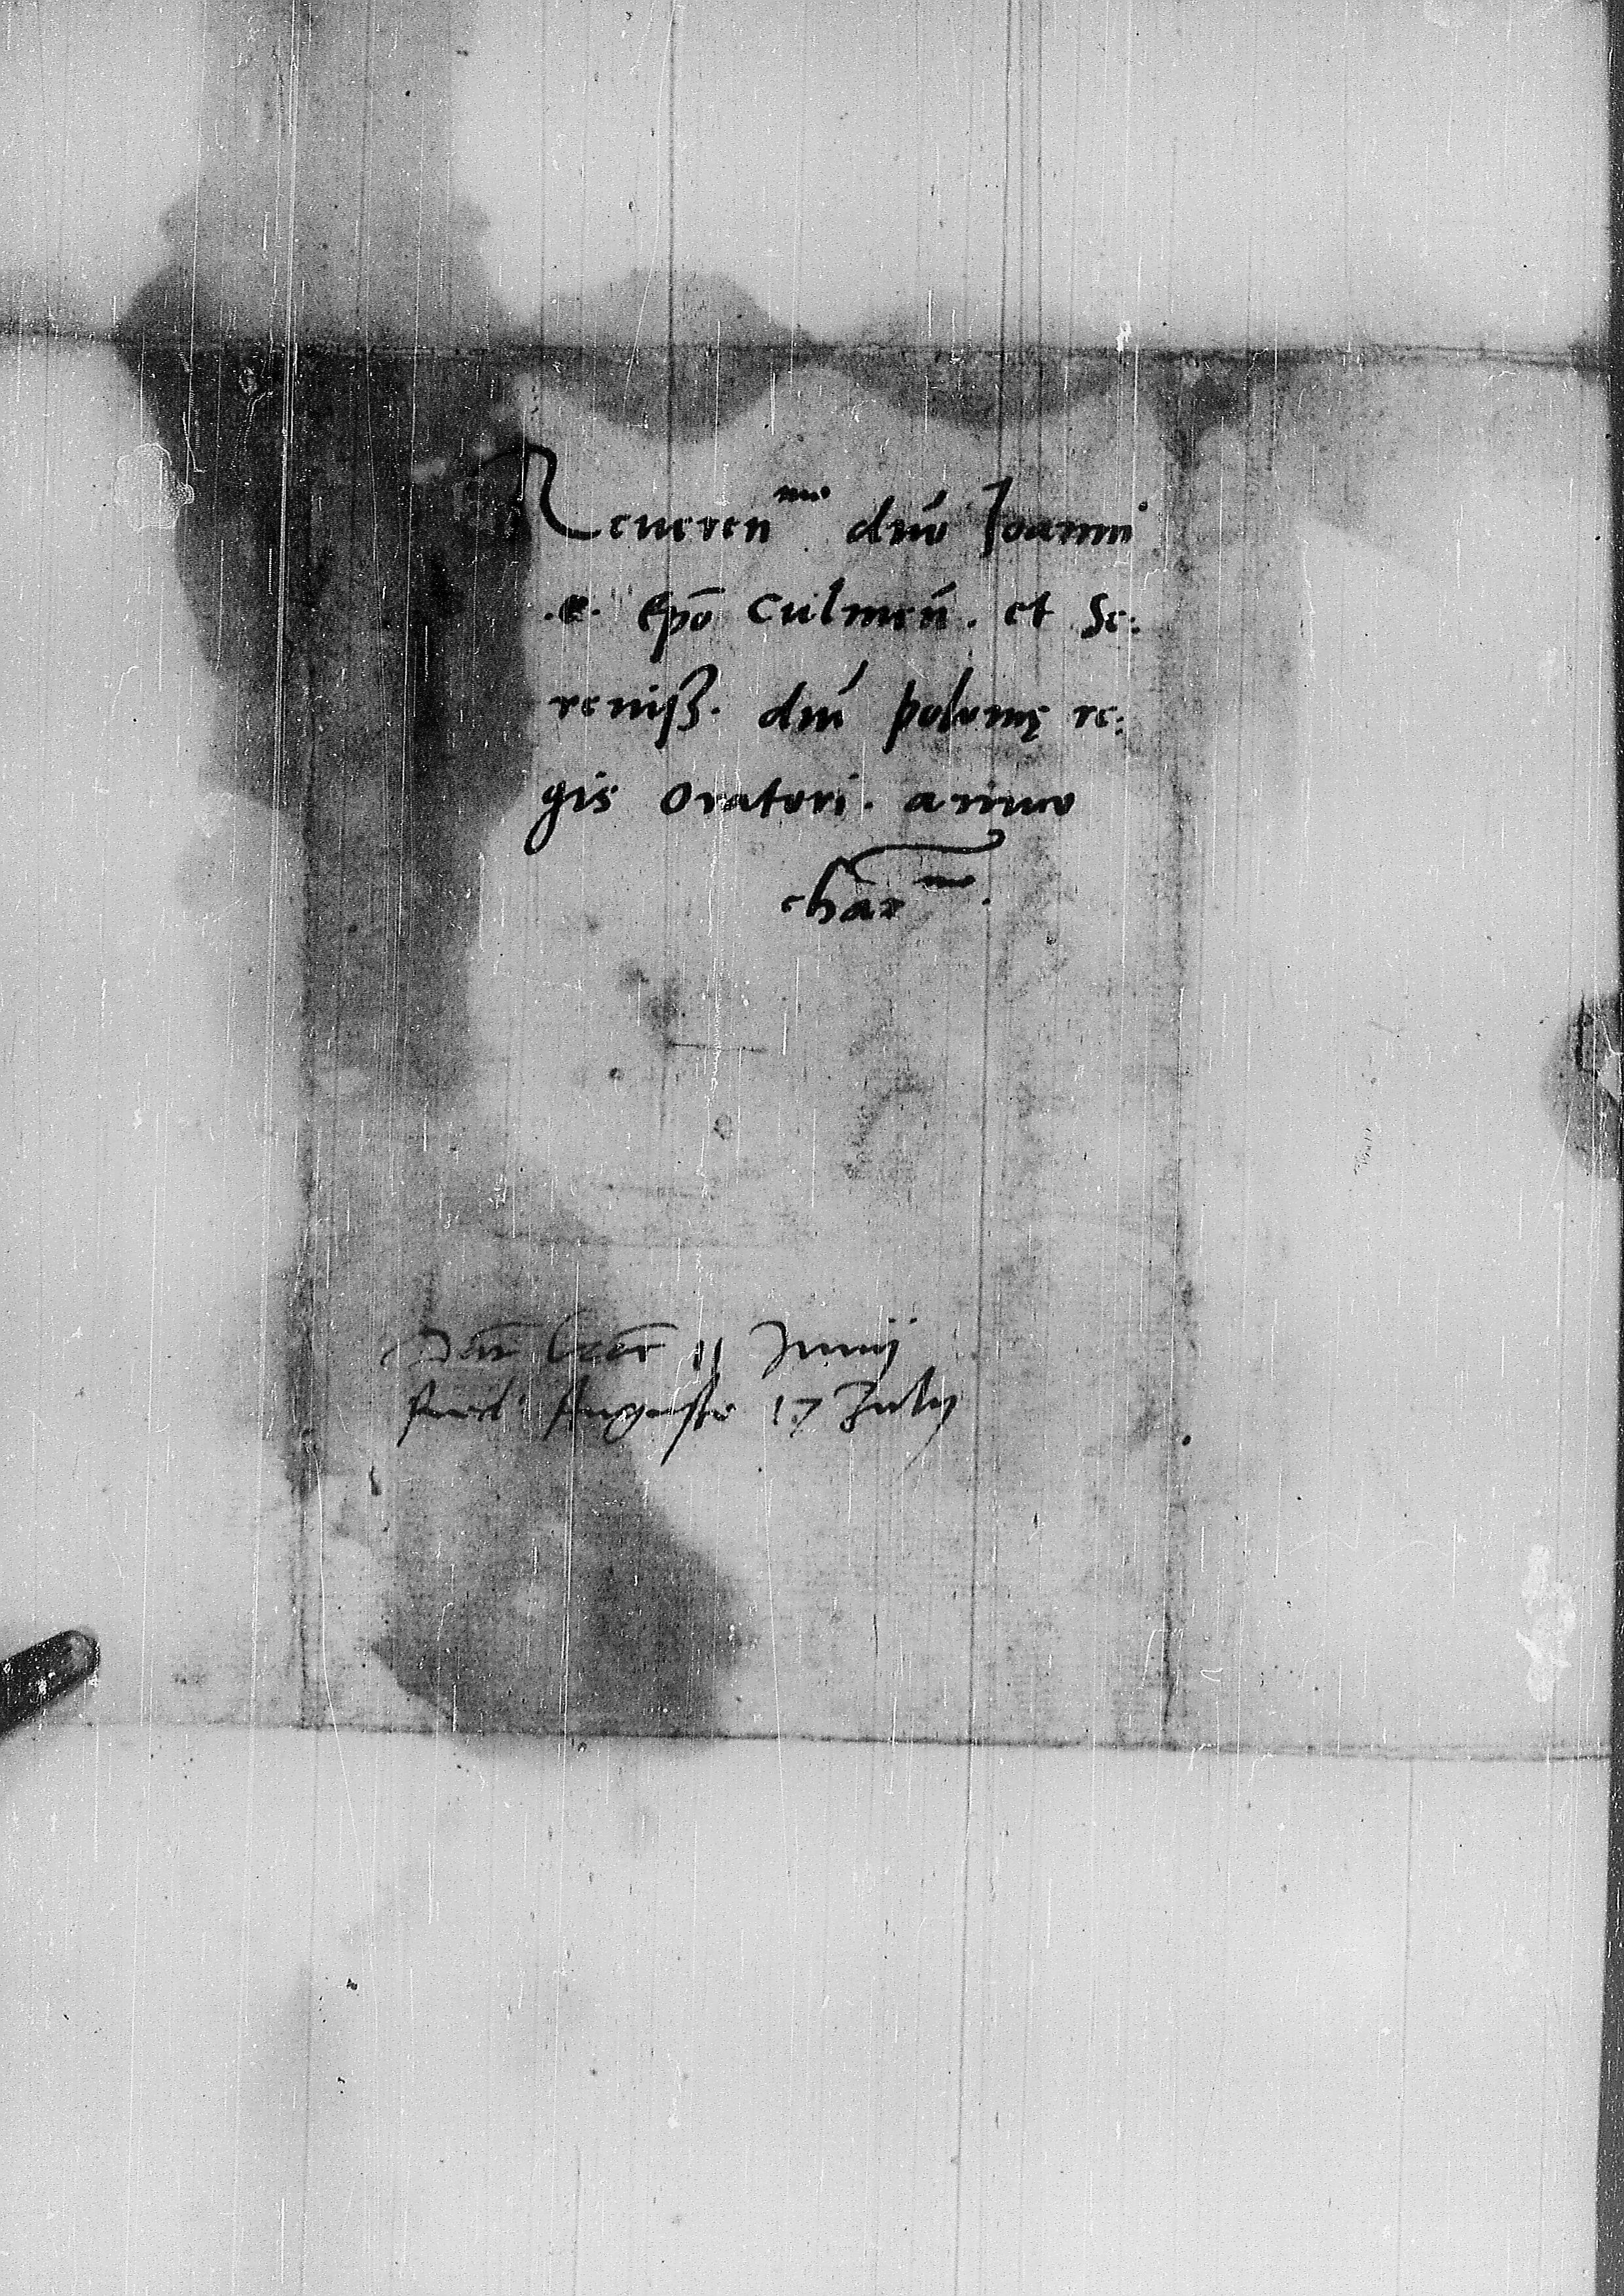 Reveren^mo dn̄o Ioanni
.e. ep̄o Culmen̄. et Se:
reniß. dn̄i polonię re:
gis oratori. amico
char^mo.
Dat 11 Junii
Augusto 17 July